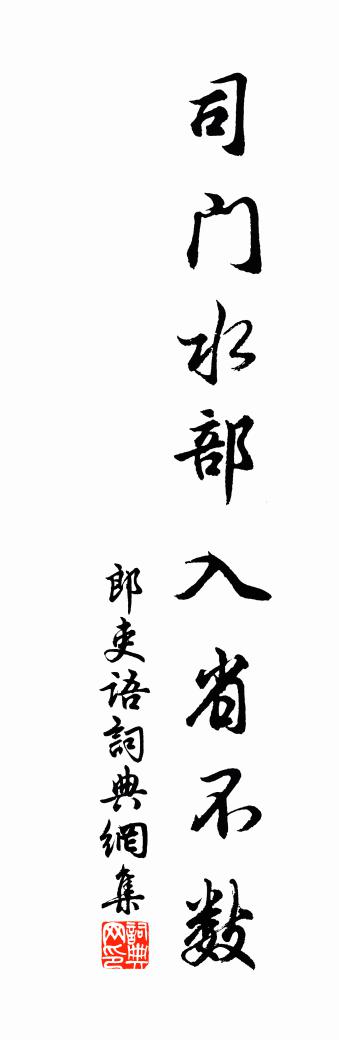 司门水部入省不数
郎吏语詞典網集
詞典网印